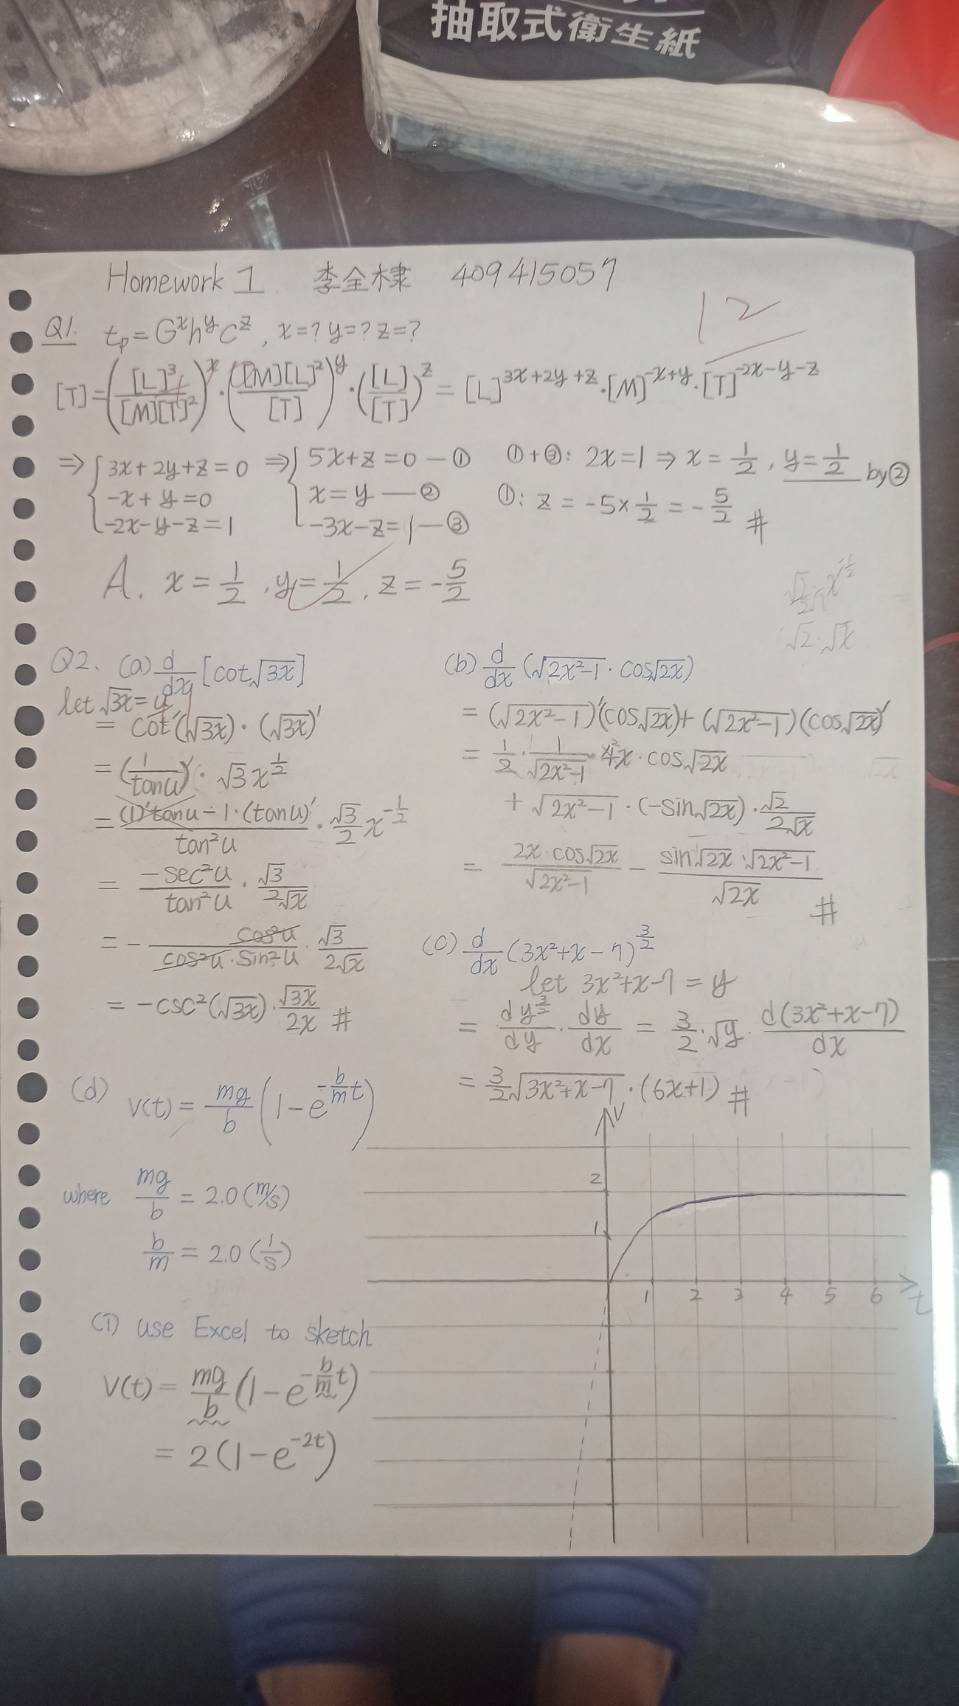 抽取式衛生紙
Homework 1 李全棣 409415057
12
Q1. t_p = G^x h^y C^z, x=? y=? z=?
[T] = ([L]^3 / [M][T]^2)^x · ([M][L]^2 / [T])^y · ([L] / [T])^z = [L]^{3x+2y+z} · [M]^{-x+y} · [T]^{-2x-y-z}
⇒ { 3x+2y+z=0 ⇒ { 5x+z=0 — ① ①+③: 2x=1 ⇒ x = 1/2, y = 1/2 by②
-x+y=0 x=y — ② ①: z = -5×1/2 = -5/2 #
-2x-y-z=1 -3x-z=1 — ③
A. x = 1/2, y = 1/2, z = -5/2
√2·√x
Q2. (a) d/dx [cot√3x]
let √3x = u
= cot'(√3x)·(√3x)'
= (1/tanu)'·√3 x^{1/2}
= ((1)'tanu - 1·(tanu)') / tan²u · √3/2 x^{-1/2}
= -sec²u / tan²u · √3 / 2√x
= - cos²u / cos²u·sin²u · √3 / 2√x
= -csc²(√3x) · √3x / 2x #
(b) d/dx (√2x²-1 · cos√2x)
= (√2x²-1)'(cos√2x) + (√2x²-1)(cos√2x)'
= 1/2 · 1/√2x²-1 · 4x · cos√2x
+ √2x²-1 · (-sin√2x) · √2 / 2√x
= 2x·cos√2x / √2x²-1 - sin√2x·√2x²-1 / √2x #
(c) d/dx (3x²+x-7)^{3/2}
let 3x²+x-7 = y
= dy^{3/2}/dy · dy/dx = 3/2·√y · d(3x²+x-7)/dx
= 3/2 √3x²+x-7 · (6x+1) #
(d) V(t) = mg/b (1 - e^{-b/m t})
where mg/b = 2.0 (m/s)
b/m = 2.0 (1/s)
(i) use Excel to sketch
V(t) = mg/b (1 - e^{-b/m t})
= 2(1 - e^{-2t})
V
2
1
1 2 3 4 5 6 t